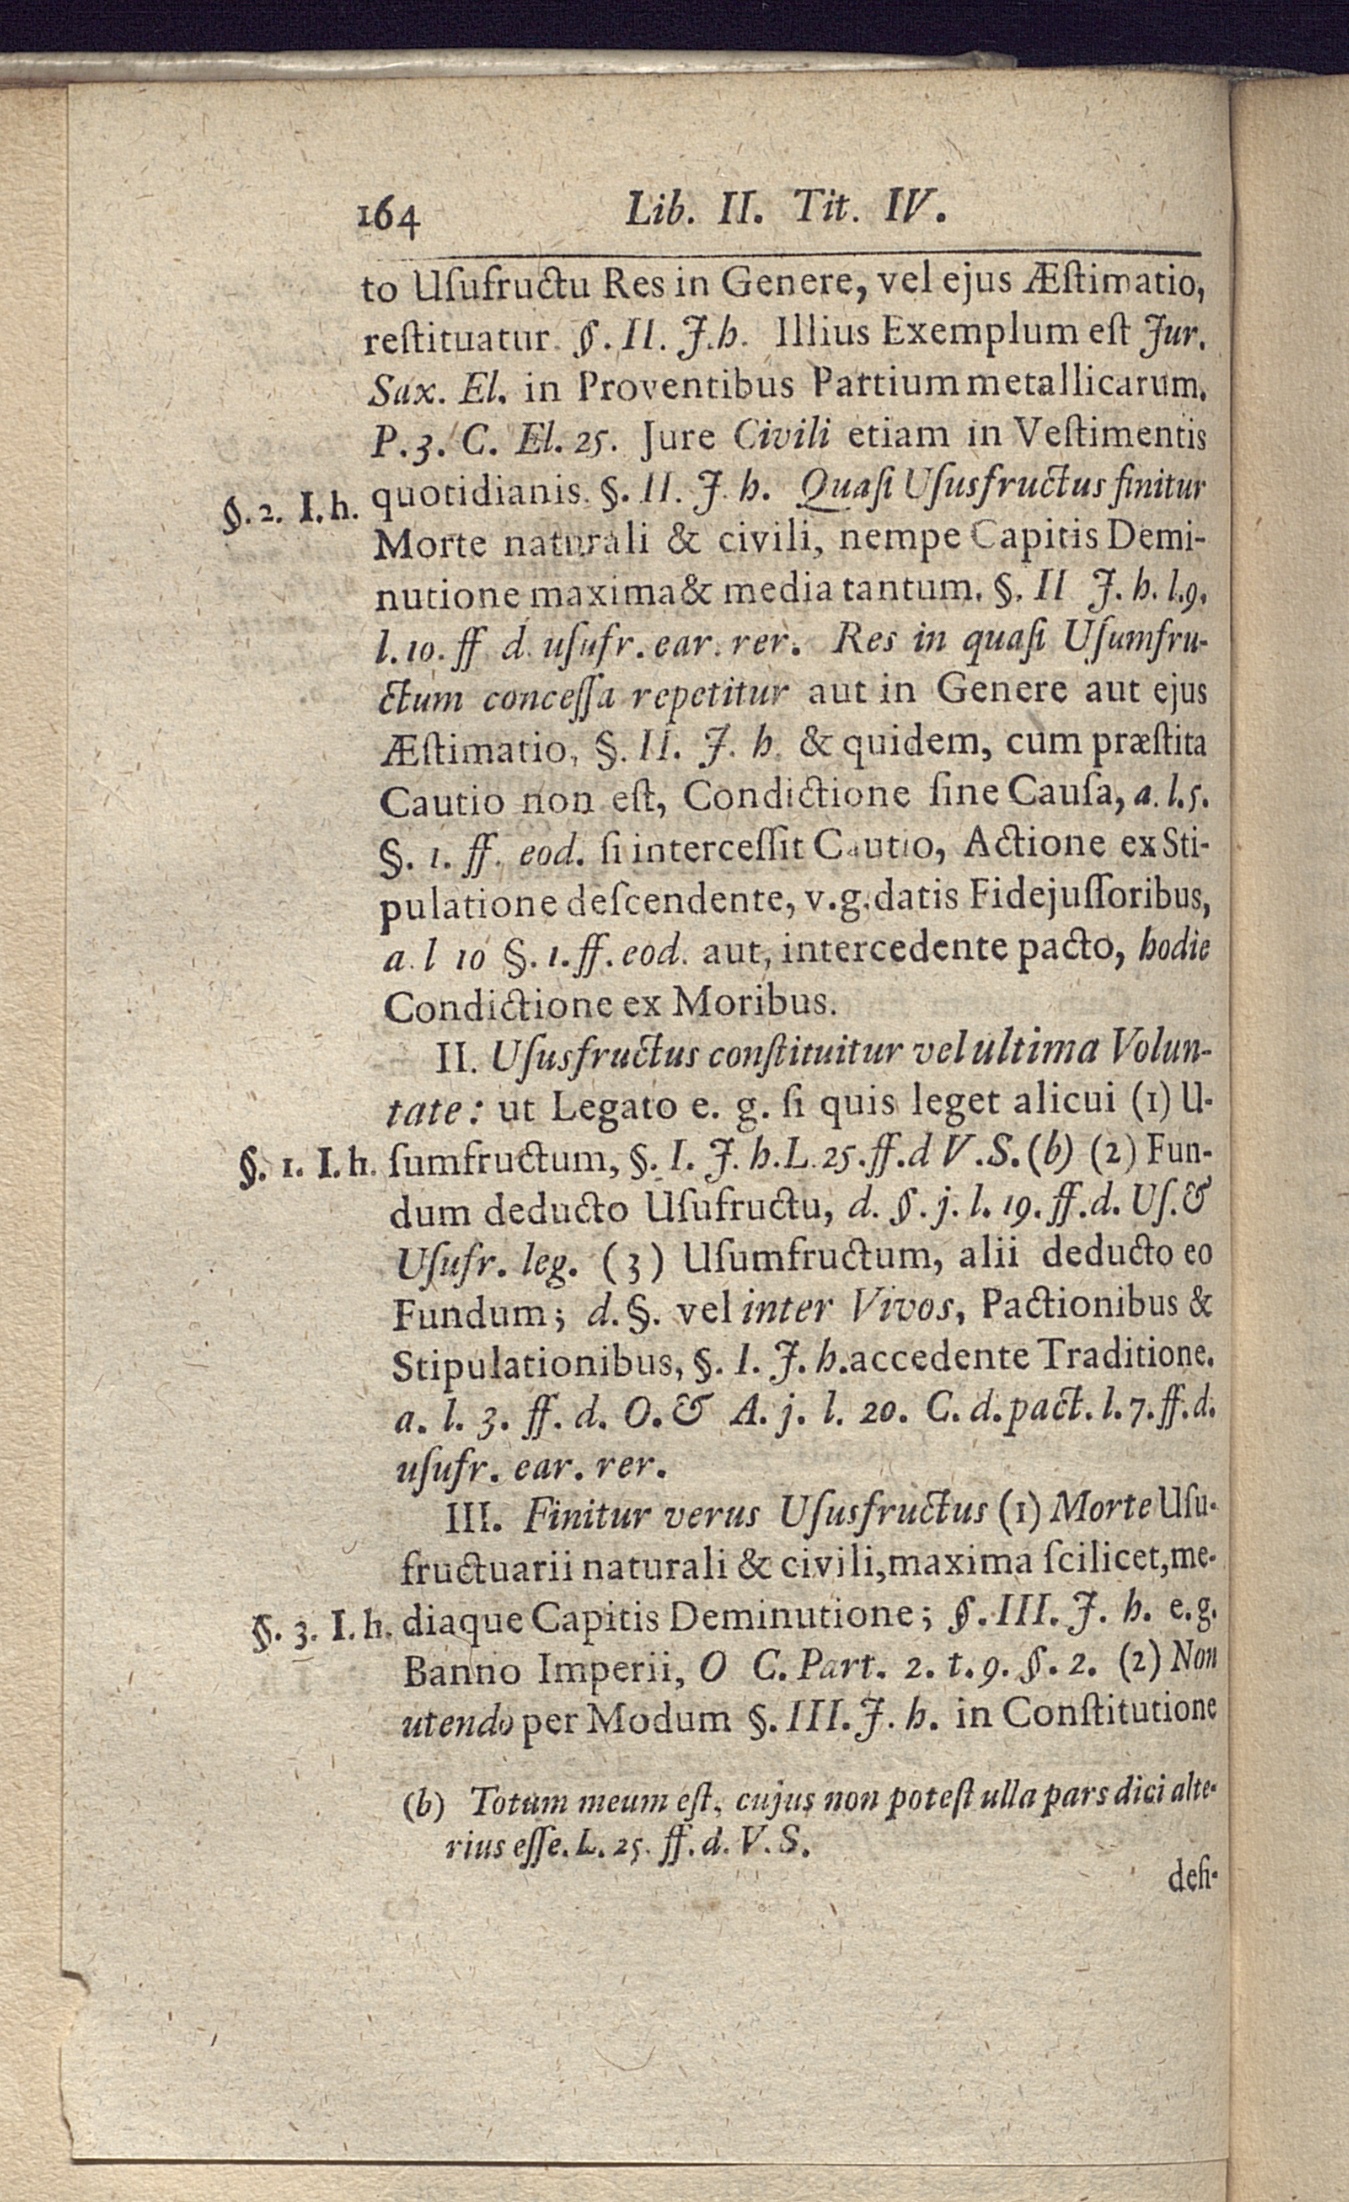 164 Lib. II. Tit. IV.
to Uſufructu Res in Genere, vel ejus Æſtimatio,
reſtituatur. §. II. J. h. Illius Exemplum eſt Jur.
Sax. El. in Proventibus Partium metallicarum.
P. 3. C. El. 25. Jure Civili etiam in Veſtimentis
§. 2. I. h. quotidianis. §. II. J. h. Quaſi Uſusfructus finitur
Morte naturali & civili, nempe Capitis Demi-
nutione maxima & media tantum. §. II J. h. l. 9.
l. 10. ff d. uſufr. ear. rer. Res in quaſi Uſumfru-
ctum conceſſa repetitur aut in Genere aut ejus
Æſtimatio, §. II. J. h. & quidem, cum præſtita
Cautio non eſt, Condictione ſine Cauſa, a. l. 5.
§. 1. ff. eod. ſi interceſſit Cautio, Actione ex Sti-
pulatione deſcendente, v. g. datis Fidejuſſoribus,
a. l 10 §. 1. ff. eod. aut, intercedente pacto, hodie
Condictione ex Moribus.
II. Uſusfructus conſtituitur vel ultima Volun-
tate: ut Legato e. g. ſi quis leget alicui (1) U-
§. 1. I. h. ſumfructum, §. I. J. h. L. 25. ff. d V. S. (b) (2) Fun-
dum deducto Uſufructu, d. §. j. l. 19. ff. d. Uſ. &
Uſufr. leg. (3) Uſumfructum, alii deducto eo
Fundum; d. §. vel inter Vivos, Pactionibus &
Stipulationibus, §. I. J. h. accedente Traditione.
a. l. 3. ff. d. O. & A. j. l. 20. C. d. pact. l. 7. ff. d.
uſufr. ear. rer.
III. Finitur verus Uſusfructus (1) Morte Uſu-
fructuarii naturali & civili, maxima ſcilicet, me-
§. 3. I. h. diaque Capitis Deminutione; §. III. J. h. e. g.
Banno Imperii, O C. Part. 2. t. 9. §. 2. (2) Non
utendo per Modum §. III. J. h. in Conſtitutione
(b) Totum meum eſt, cujus non poteſt ulla pars dici alte-
rius eſſe. L. 25. ff. d. V. S.
defi-